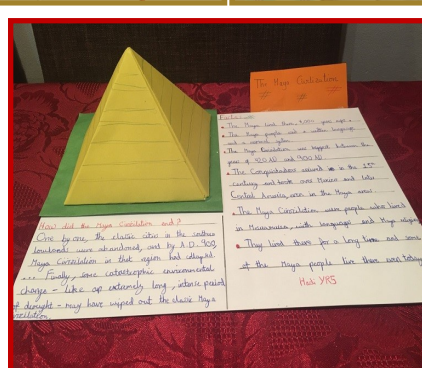 The Maya Civilization
• The Maya lived there 4,000 years ago.
• The Maya people used a written language
and a number system.
• The Maya Civilization was biggest between the
years of 420 AD and 900 AD.
• The Conquistadors arrived in the
century and took over Mexico and
Central America, even in the Maya areas.
• The Maya Civilization were people who lived
in Mesoamerica, with languages and Maya religion.
• They lived there for a long time and some
of the Maya people live there now today
YR5
How did the Maya Civilization end?
One by one, the classic cities in the southern
lowlands were abandoned, and by A.D. 900,
Maya Civilization in that region had collapsed.
... Finally, some catastrophic environmental
change - like an extremely long, intense period
of drought - may have wiped out the classic Maya
civilization.